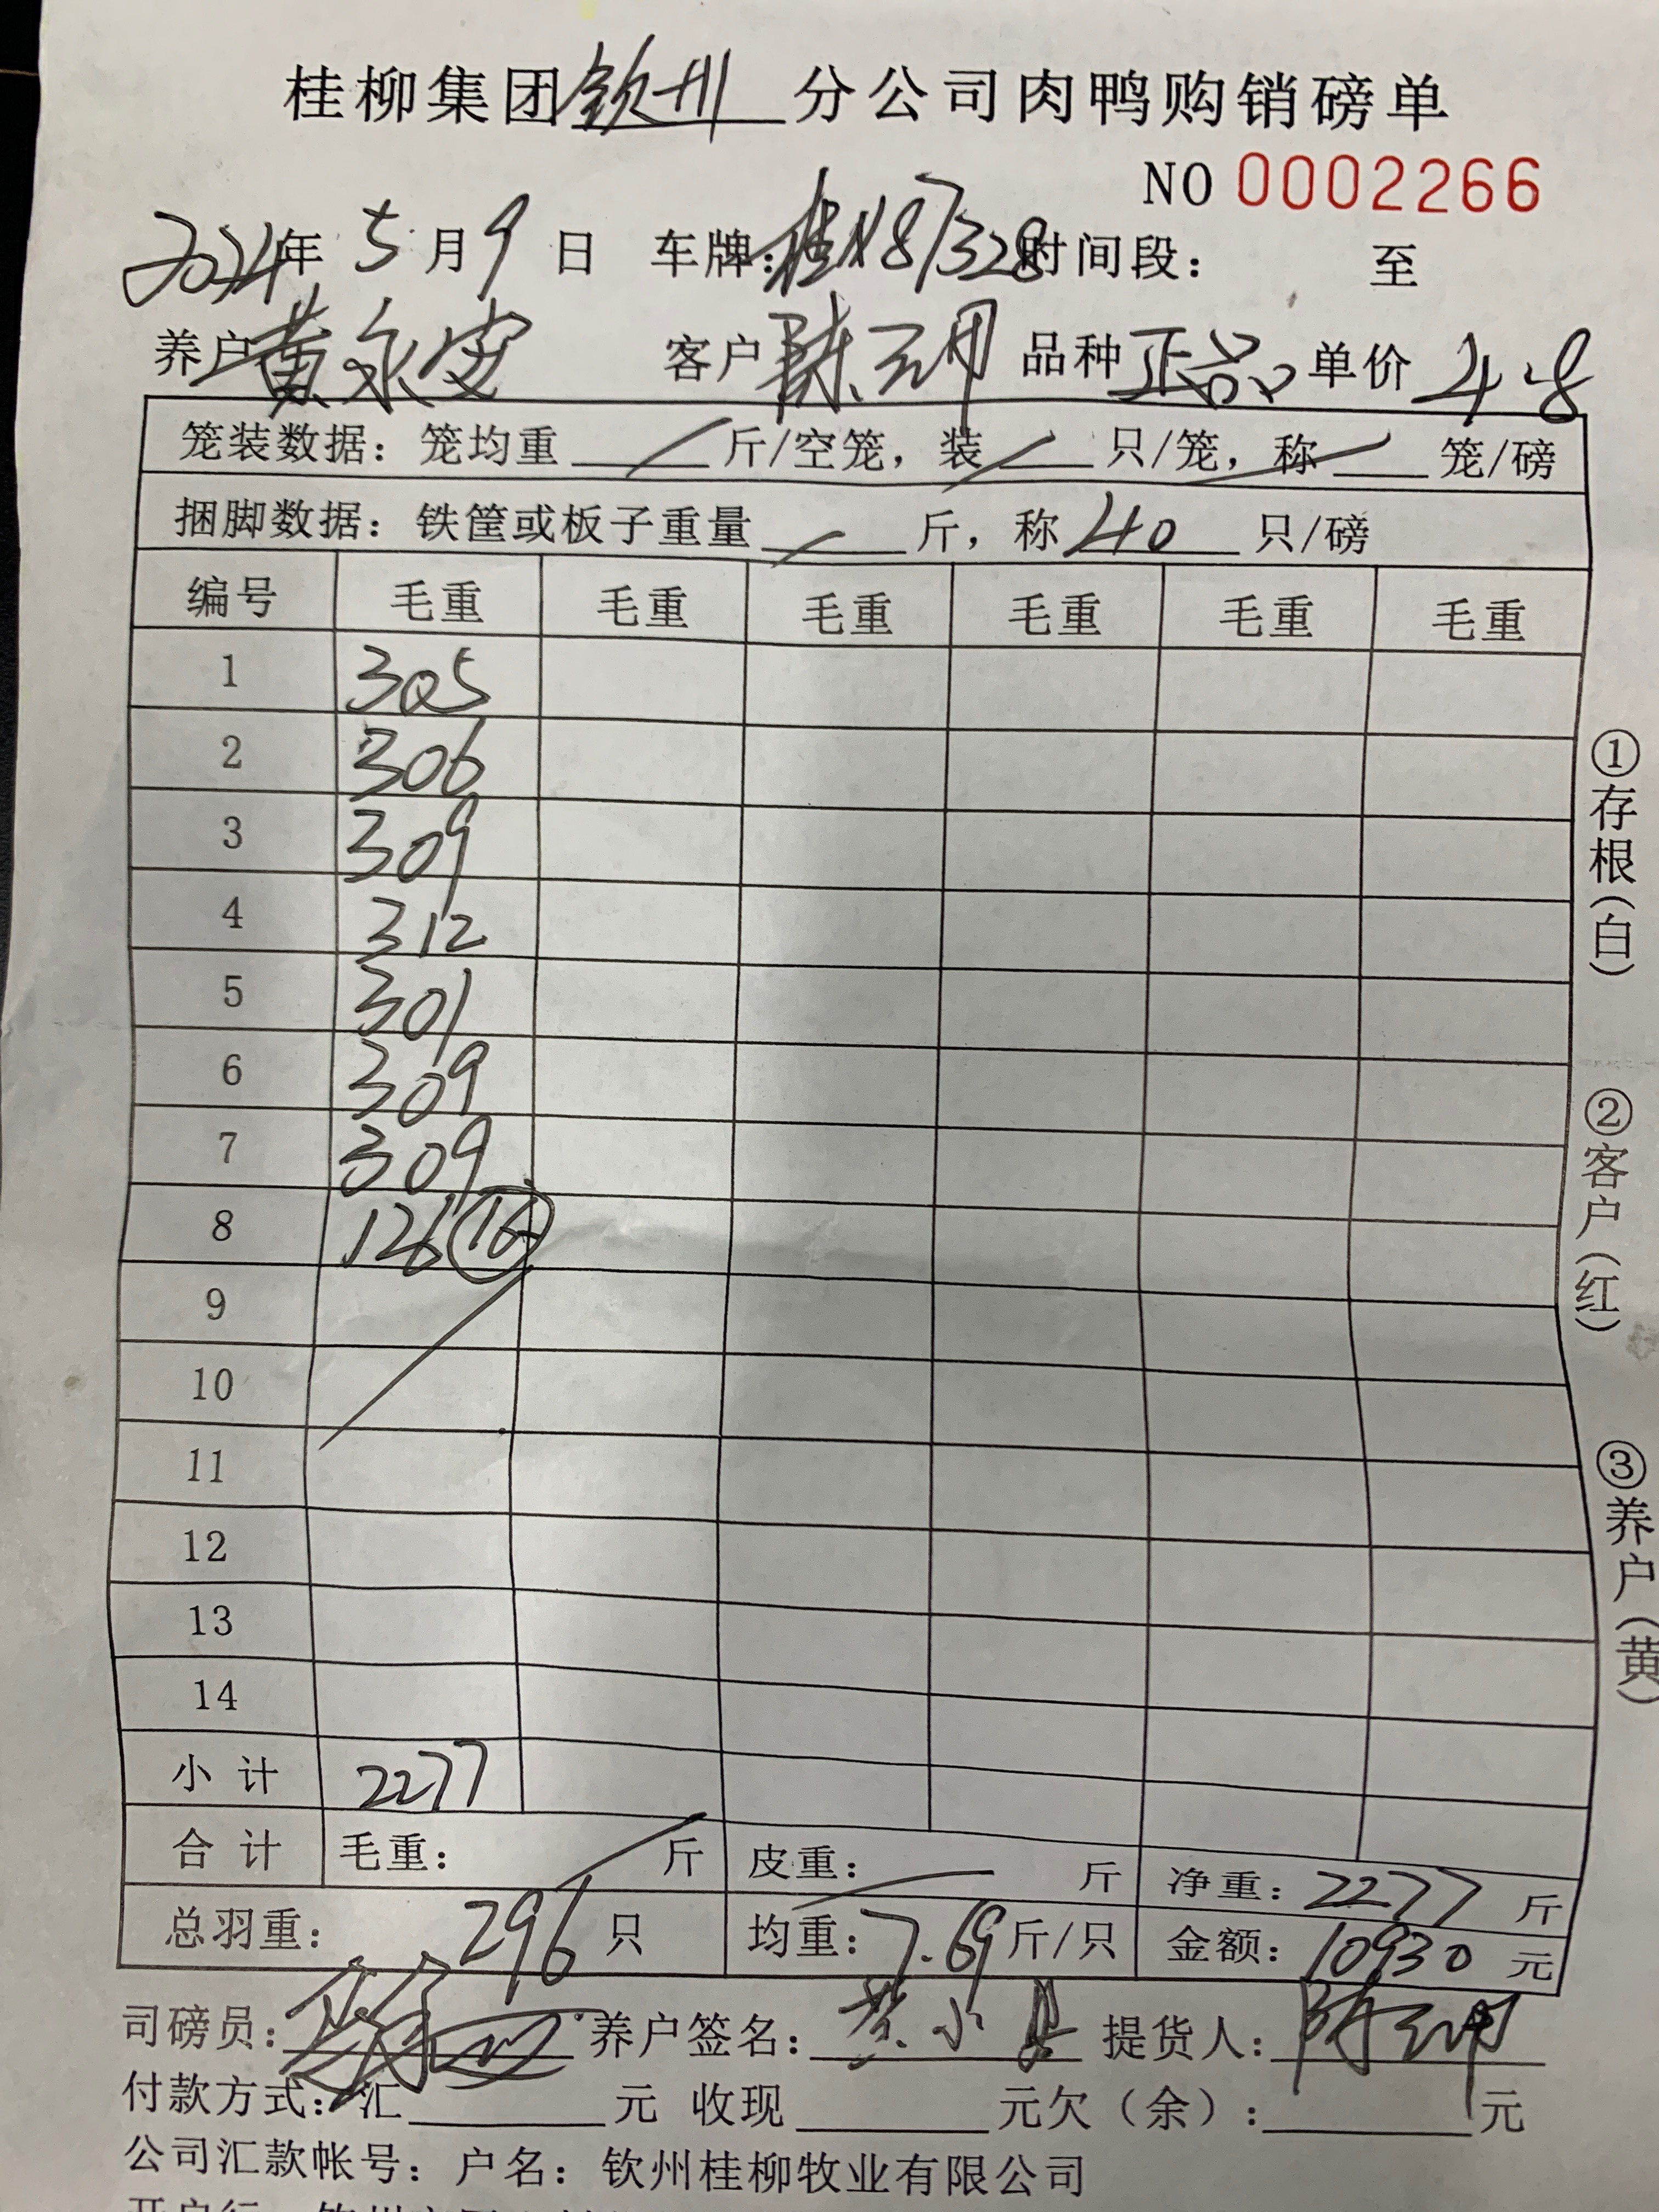 桂柳集团钦州分公司肉鸭购销磅单
NO 0002266
2024年 5月9日 车牌:桂N87328时间段: 至
养户黄永安 客户陈云明 品种正品 单价4.8
笼装数据:笼均重 / 斤/空笼,装 / 只/笼,称 / 笼/磅
捆脚数据:铁筐或板子重量 / 斤,称 40 只/磅
编号 毛重 毛重 毛重 毛重 毛重 毛重
1 305
2 306
3 309
4 312
5 301
6 309
7 309
8 126 16
9
10
11
12
13
14
小计 2277
合计 毛重: / 斤 皮重: 斤 净重:2277斤
总羽重: 296 只 均重:7.69斤/只 金额:10930元
司磅员: 养户签名: 提货人:
付款方式:汇 元 收现 元欠(余): 元
公司汇款帐号:户名:钦州桂柳牧业有限公司
①存根(白)
②客户(红)
③养户(黄)